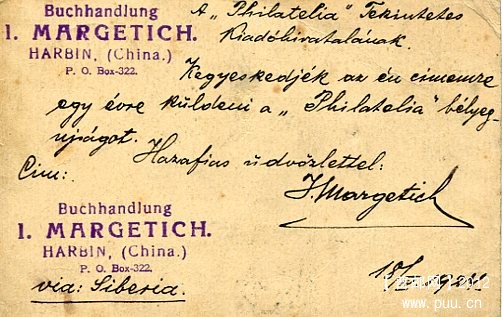 Buchhandlung
I. MARGETICH.
HARBIN, (China.)
P. O. Box-322.
A „Philatelia” Tekintetes
Kiadóhivatalának.
Kegyeskedjék az én cimemre
egy évre küldeni a „Philatelia” bélyeg-
ujságot.
Hazafias üdvözlettel:
Cim:
I. Margetich
Buchhandlung
I. MARGETICH.
HARBIN, (China.)
P. O. Box-322.
via: Siberia.
www.puu.cn